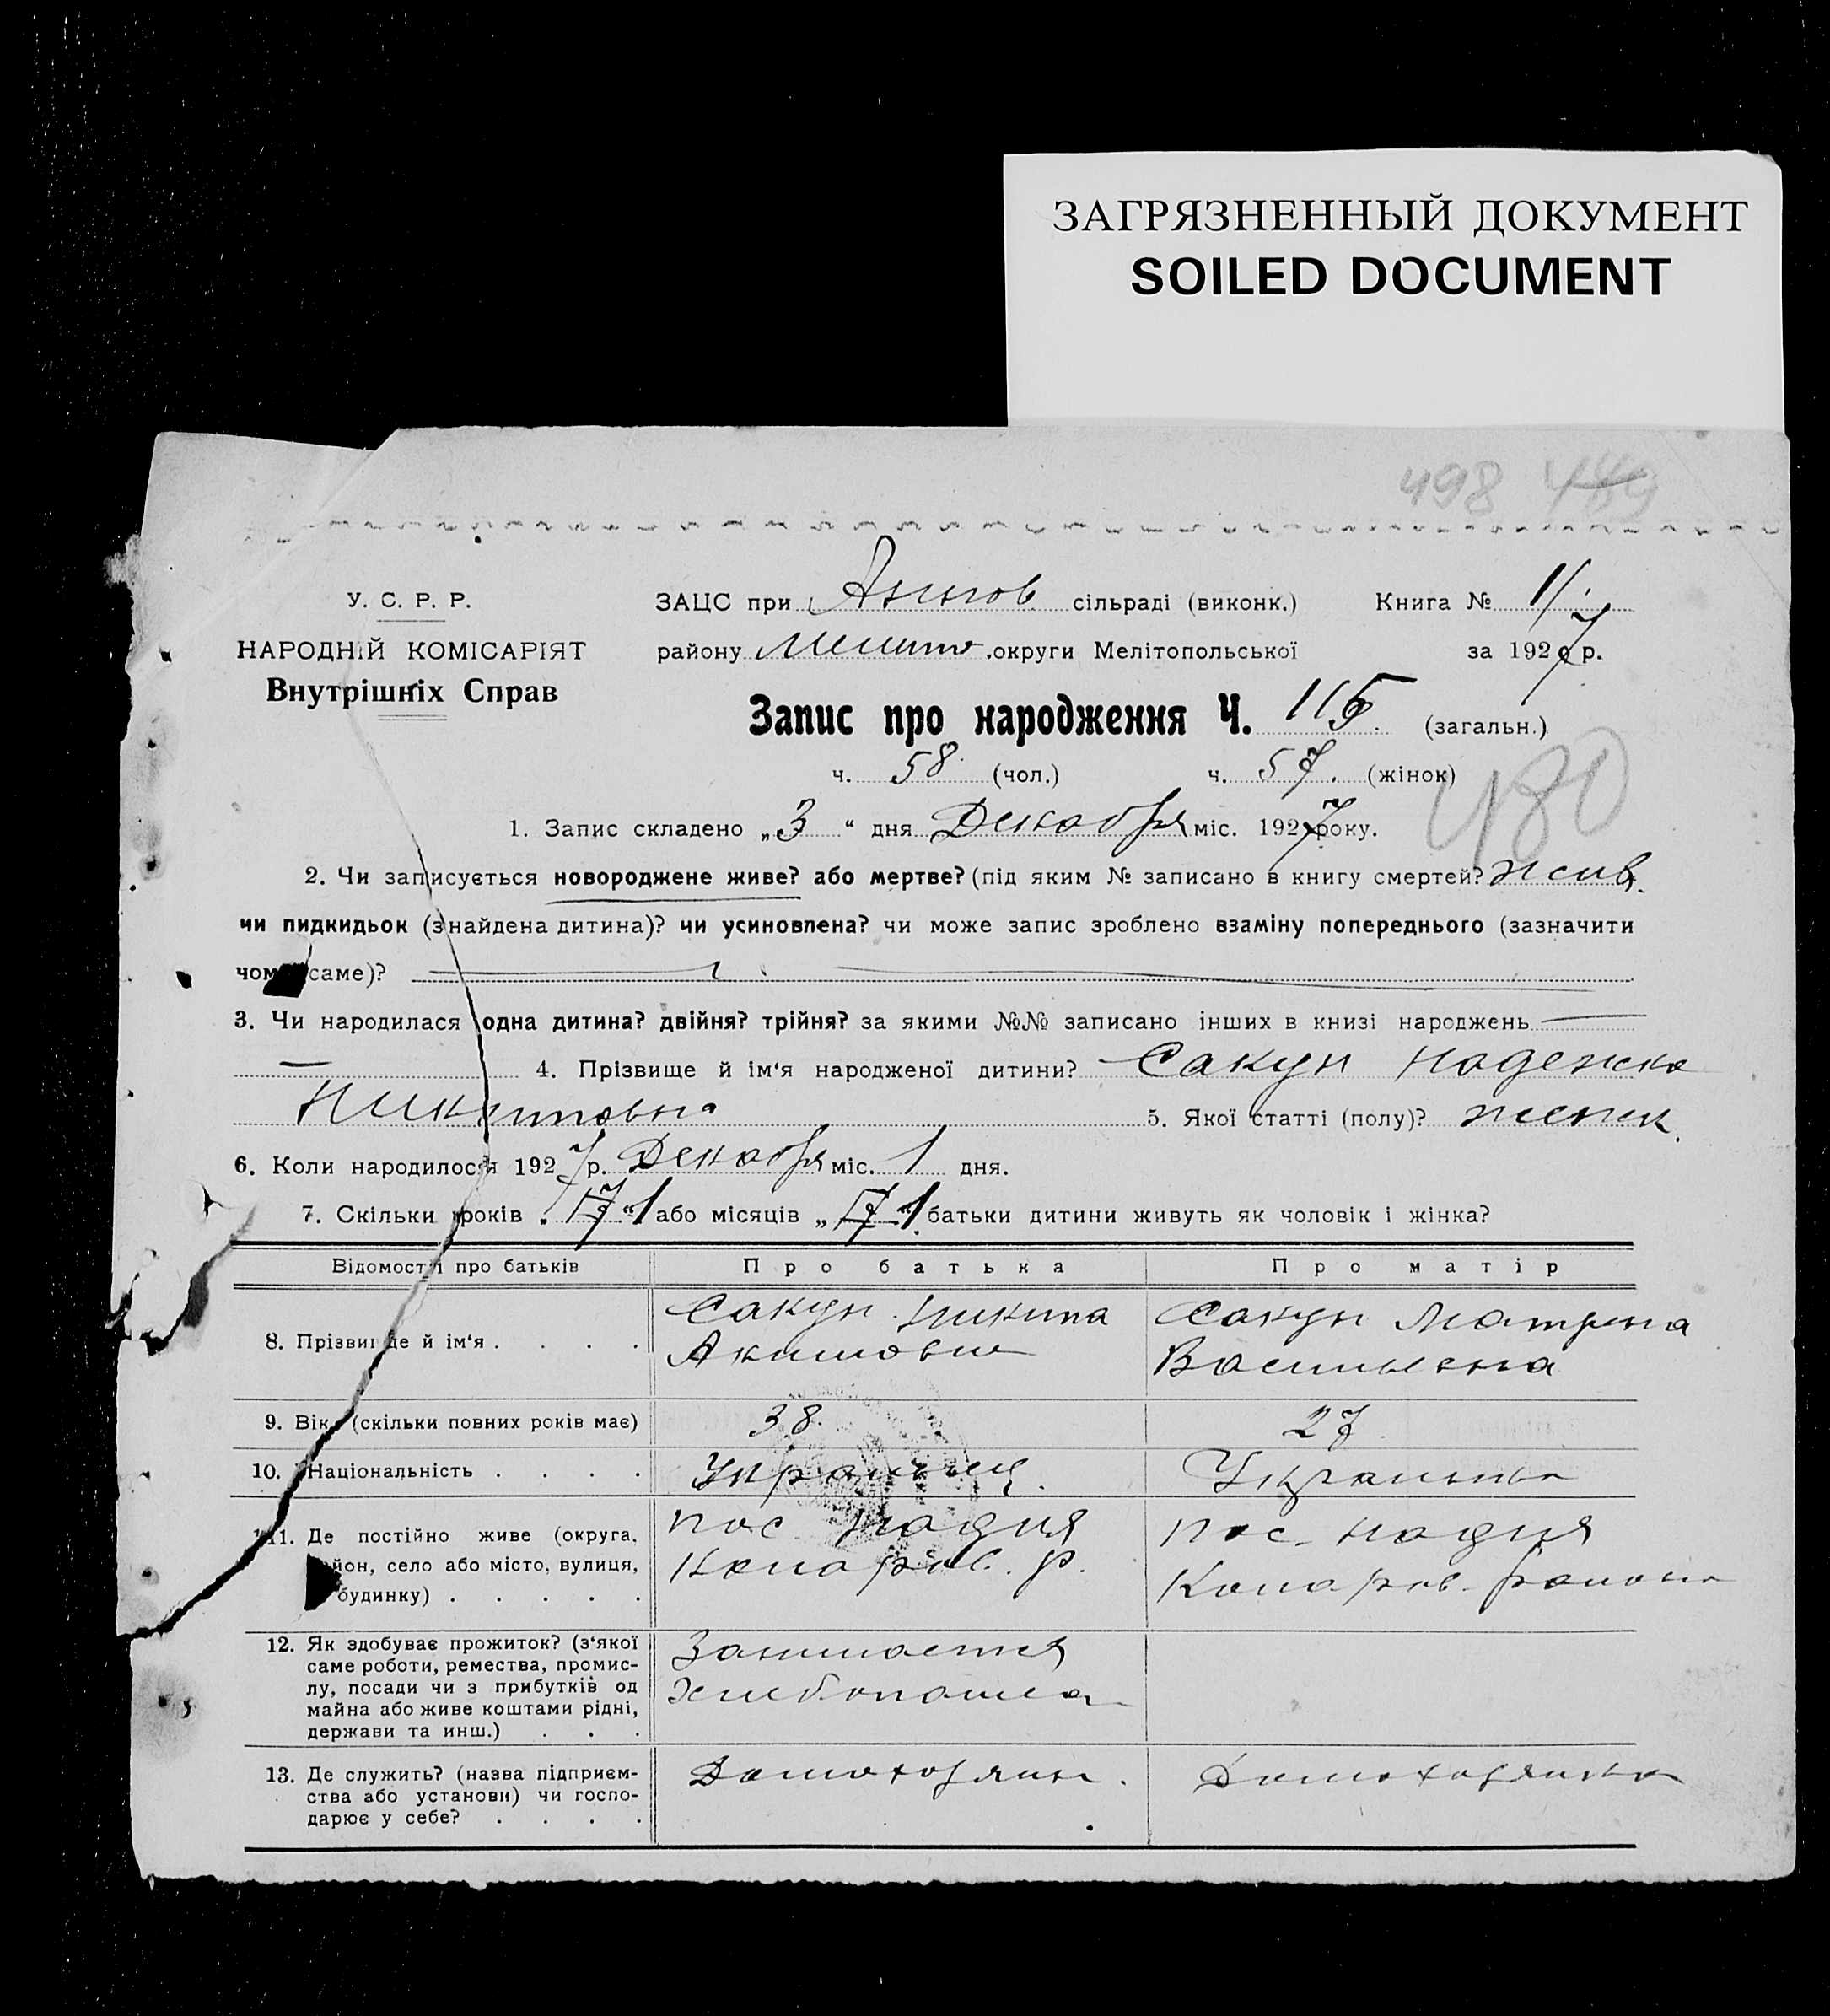 ЗАГРЯЗНЕННЫЙ ДОКУМЕНТ
SOILED DOCUMENT
498 489
У. С. Р. Р.
НАРОДНІЙ КОМІСАРІЯТ
Внутрішніх Справ
ЗАЦС при Акимов сільраді (виконк.) Книга № 1/
району Мелито округи Мелітопольської за 1927 р.
Запис про народження Ч. 115 (загальн.)
ч. 58 (чол.) ч. 57. (жінок)
480
1. Запис складено „3“ дня Декабря міс. 1927 року.
2. Чи записується новороджене живе? або мертве? (під яким № записано в книгу смертей? жив.
чи пидкидьок (знайдена дитина)? чи усиновлена? чи може запис зроблено взаміну попереднього (зазначити
чому саме)?
3. Чи народилася одна дитина? двійня? трійня? за якими №№ записано інших в книзі народжень —
— 4. Прізвище й ім‘я народженої дитини? Сакун Надежда
Никитовна 5. Якої статті (полу)? женск.
6. Коли народилося 1927 р. Декабря міс. 1 дня.
7. Скільки років „17“ 1 або місяців „17“ 1 батьки дитини живуть як чоловік і жінка?
Відомості про батьків Про батька Про матір
8. Прізвище й ім‘я . . . . Сакун Никита Сакун Матрена
Акимович Васильевна
9. Вік (скільки повних років має) 38 27
10. Національність . . . . Украинец. Украинка
11. Де постійно живе (округа, район, село або місто, вулиця, будинку) . . . . .
пос Надия
пос. Надия
12. Як здобуває прожиток? (з‘якої
саме роботи, ремества, промис-
лу, посади чи з прибутків од
майна або живе коштами рідні,
держави та инш.) . . .
Занимается
хлебопашеств
13. Де служить? (назва підприєм-
ства або установи) чи госпо-
дарює у себе? . . . .
Домохозяин. Домохозяйка